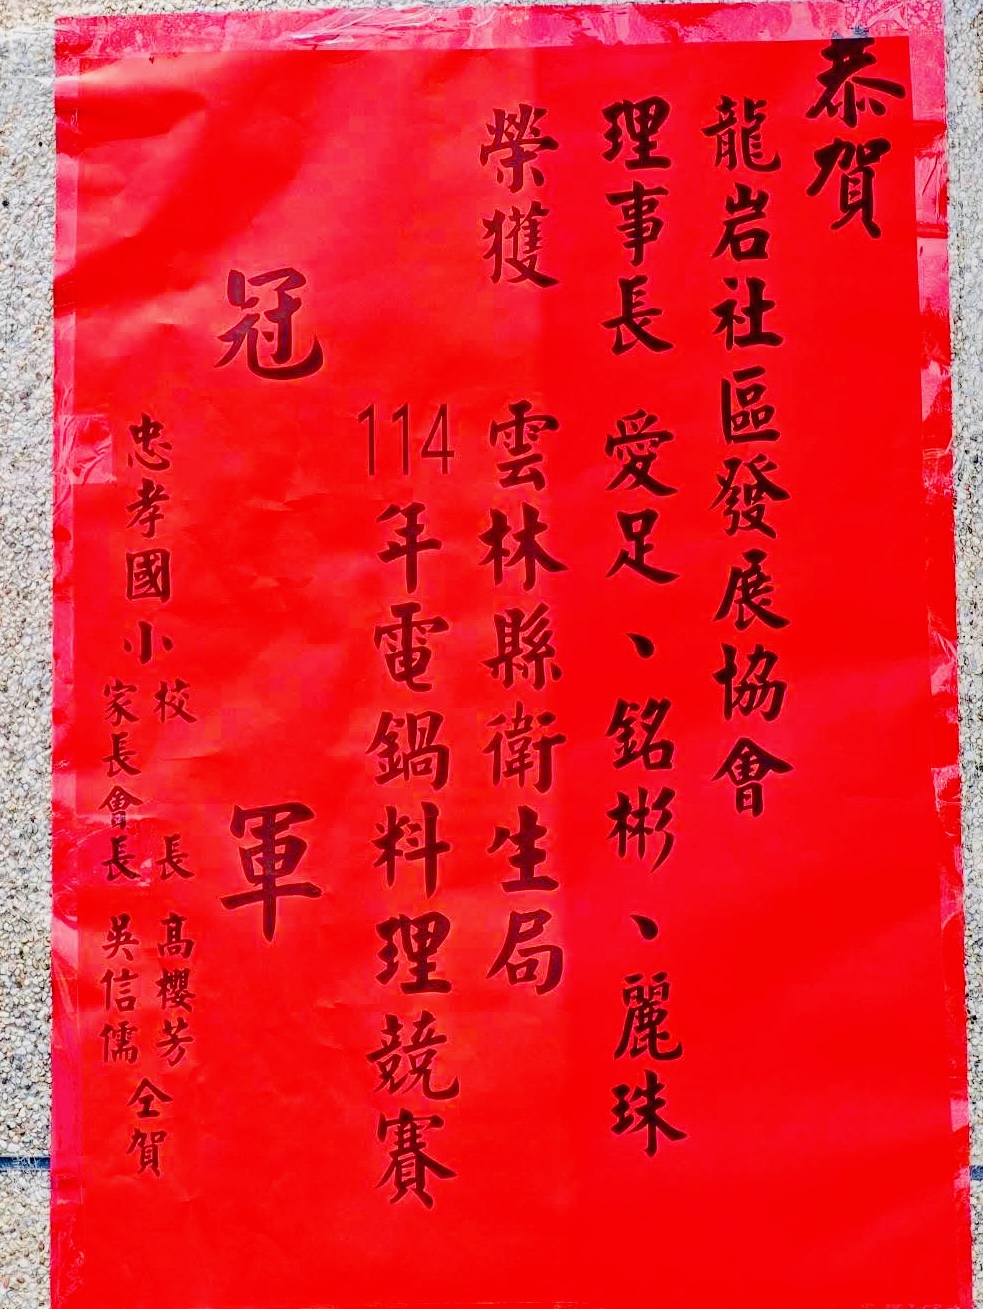 恭賀
龍岩社區發展協會
理事長 愛足、銘彬、麗珠
榮獲 雲林縣衛生局
114年電鍋料理競賽
冠軍
忠孝國小
校長 高櫻芳
家長會長 吳信儒
仝賀